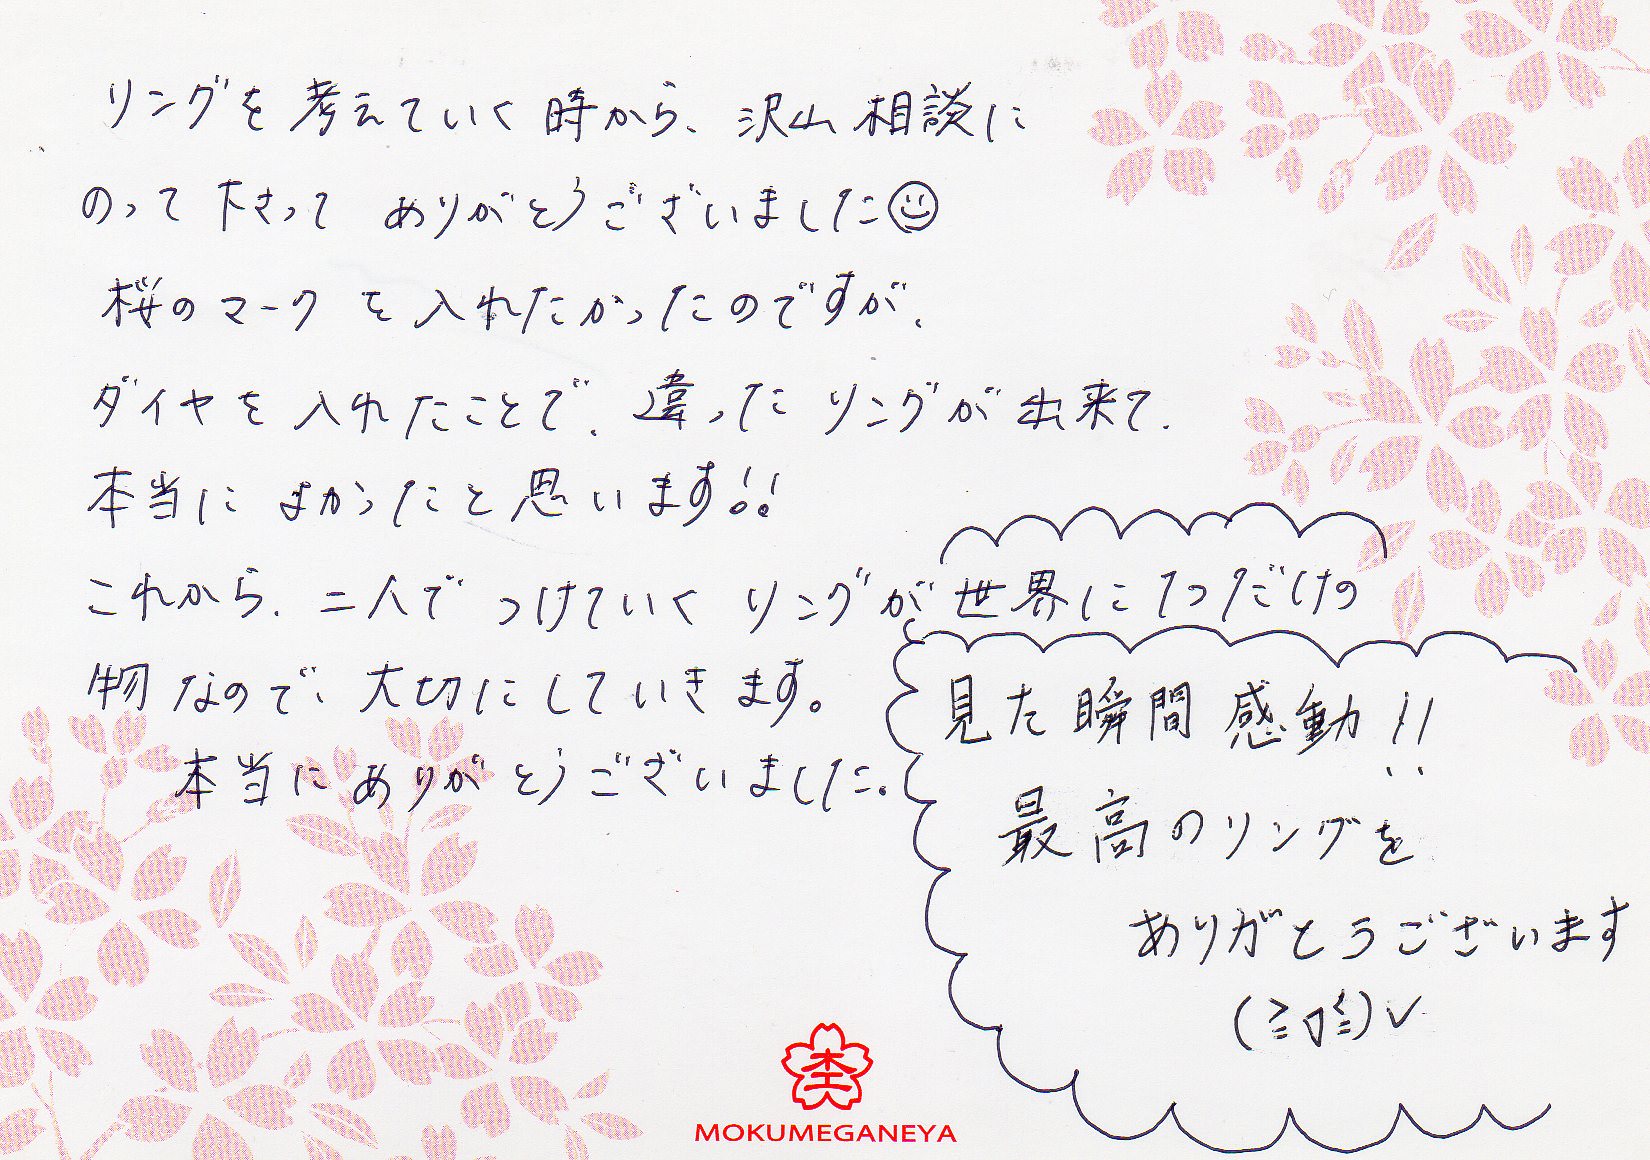 リングを考えていく時から、沢山相談に
のって下さってありがとうございました☺
桜のマークを入れたかったのですが、
ダイヤを入れたことで、違ったリングが出来て、
本当によかったと思います!!
これから、二人でつけていくリングが世界に1つだけの
物なので、大切にしていきます。
本当にありがとうございました。
見た瞬間感動!!
最高のリングを
ありがとうございます
(≧▽≦)✓
杢
MOKUMEGANEYA